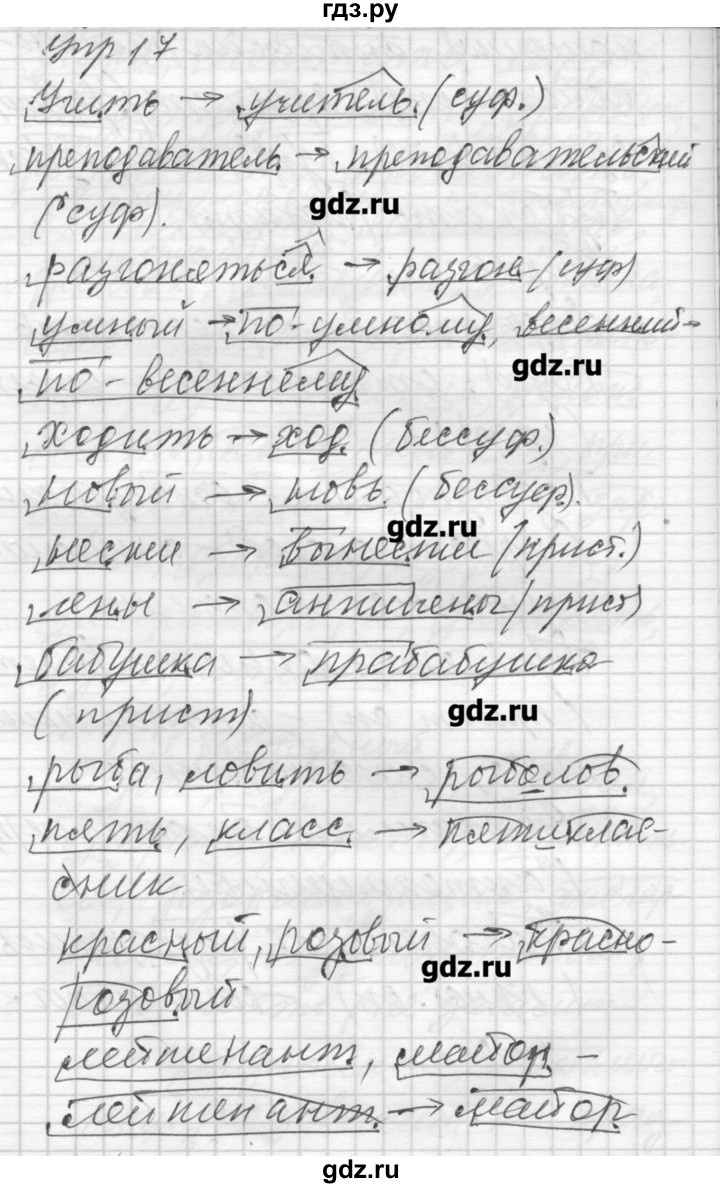 гдз.ру
Упр 17
Учить → учитель. (суф.)
преподаватель → преподавательский
(суф).
gdz.ru
разгоняться → разгон (суф)
умный → по-умному, весенний →
gdz.ru
по-весеннему
ходить → ход. (бессуф.)
новый → новь. (бессуф).
gdz.ru
нести → вынести (прист.)
гены → антигены (прист)
бабушка → прабабушка
(прист)
gdz.ru
рыба, ловить → рыболов.
пять, класс. → пятиклас-
сник
красный, розовый → красно-
gdz.ru
розовый
лейтенант, майор -
лейтенант → майор
gdz.ru